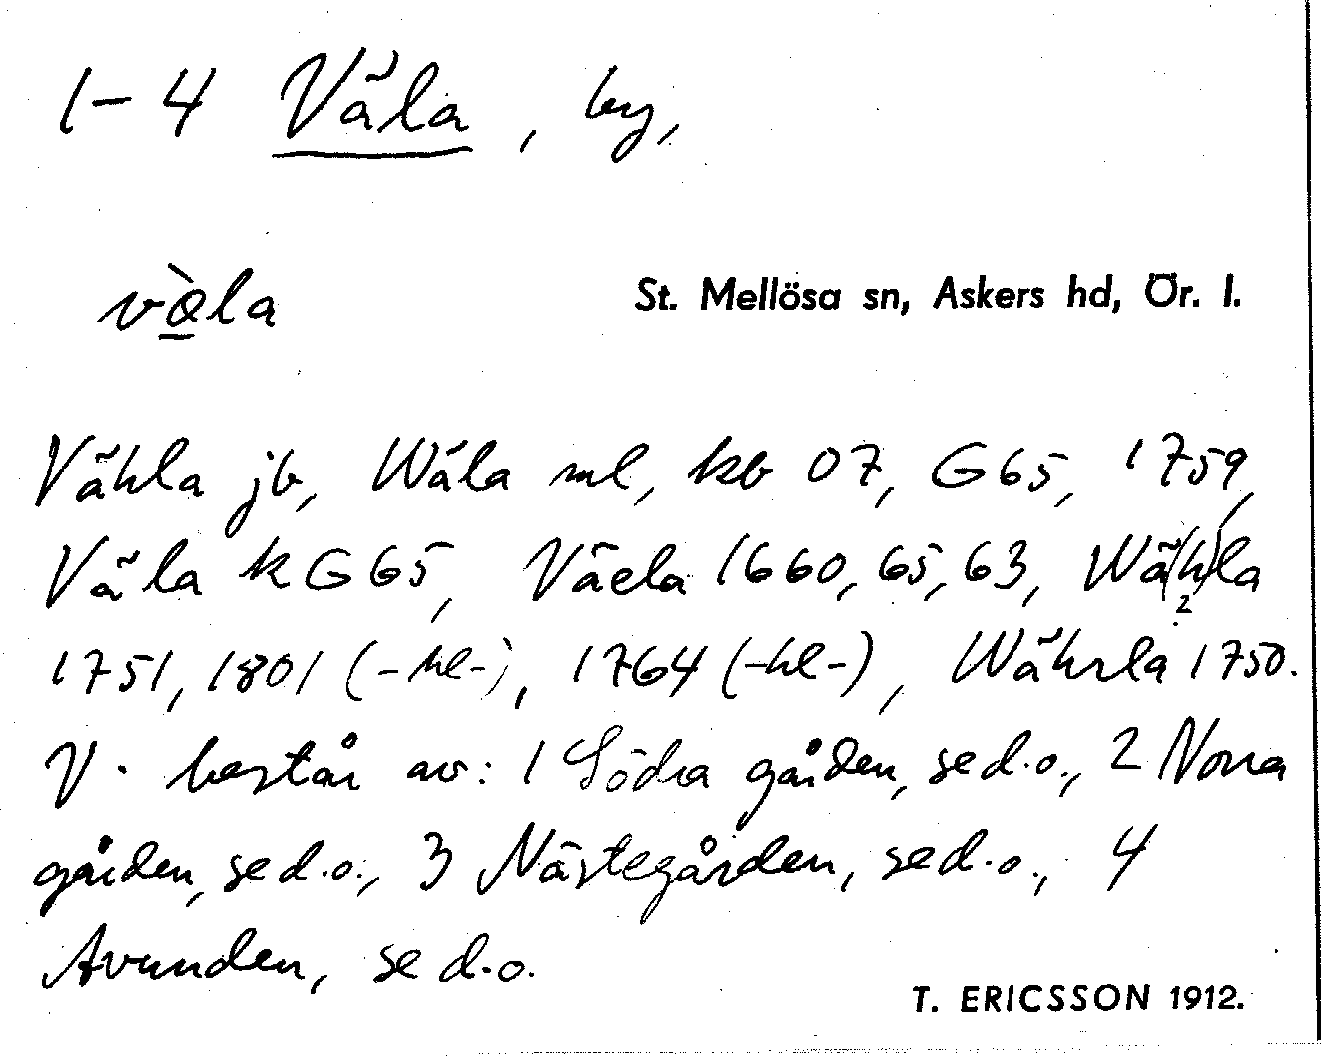 1-4 Väla, by,
vὰla
St. Mellösa sn, Askers hd, Ör. l.
Vähla jb, Wäla ml, kb 07, G65, 1759,
Väla k G 65, Väela 1660, 65, 63, Wä(h)la
2
1751, 1801 (-hl-), 1764 (-hl-), Währla 1750.
V. består av: 1 Södra gården, se d.o., 2 Norra
gården, se d.o., 3 Nästegården, se d.o., 4
Avunden, se d.o.
T. ERICSSON 1912.